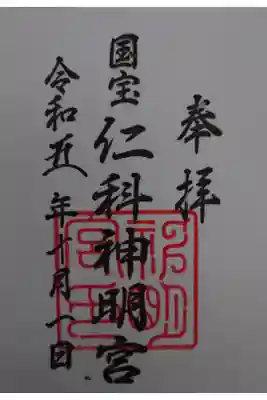 奉拝
国宝 仁科神明宮
令和五年十月一日